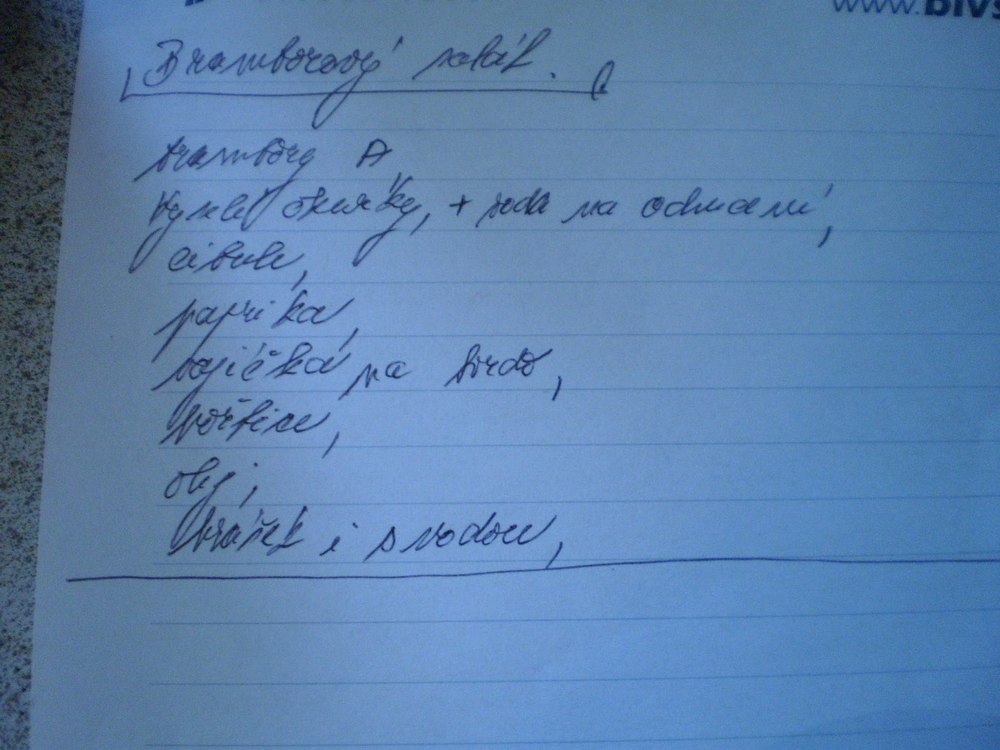 www.
Bramborový salát.
brambory A
kyselé okurky, + voda na odvaření,
cibule,
paprika,
vajíčka na tvrdo,
hořčice,
olej,
hrášek i s vodou,